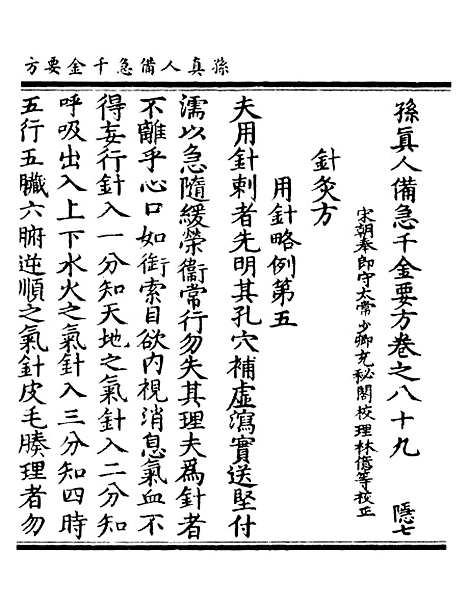 孫真人備急千金要方
孫真人備急千金要方卷之八十九 隱七
宋朝奉郎守太常少卿充秘閣校理林億等校正
針灸方
用針略例第五
夫用針刺者先明其孔穴補虛瀉實送堅付
濡以急隨緩榮衞常行勿失其理夫為針者
不離乎心口如銜索目欲內視消息氣血不
得妄行針入一分知天地之氣針入二分知
呼吸出入上下水火之氣針入三分知四時
五行五臟六腑逆順之氣針皮毛腠理者勿